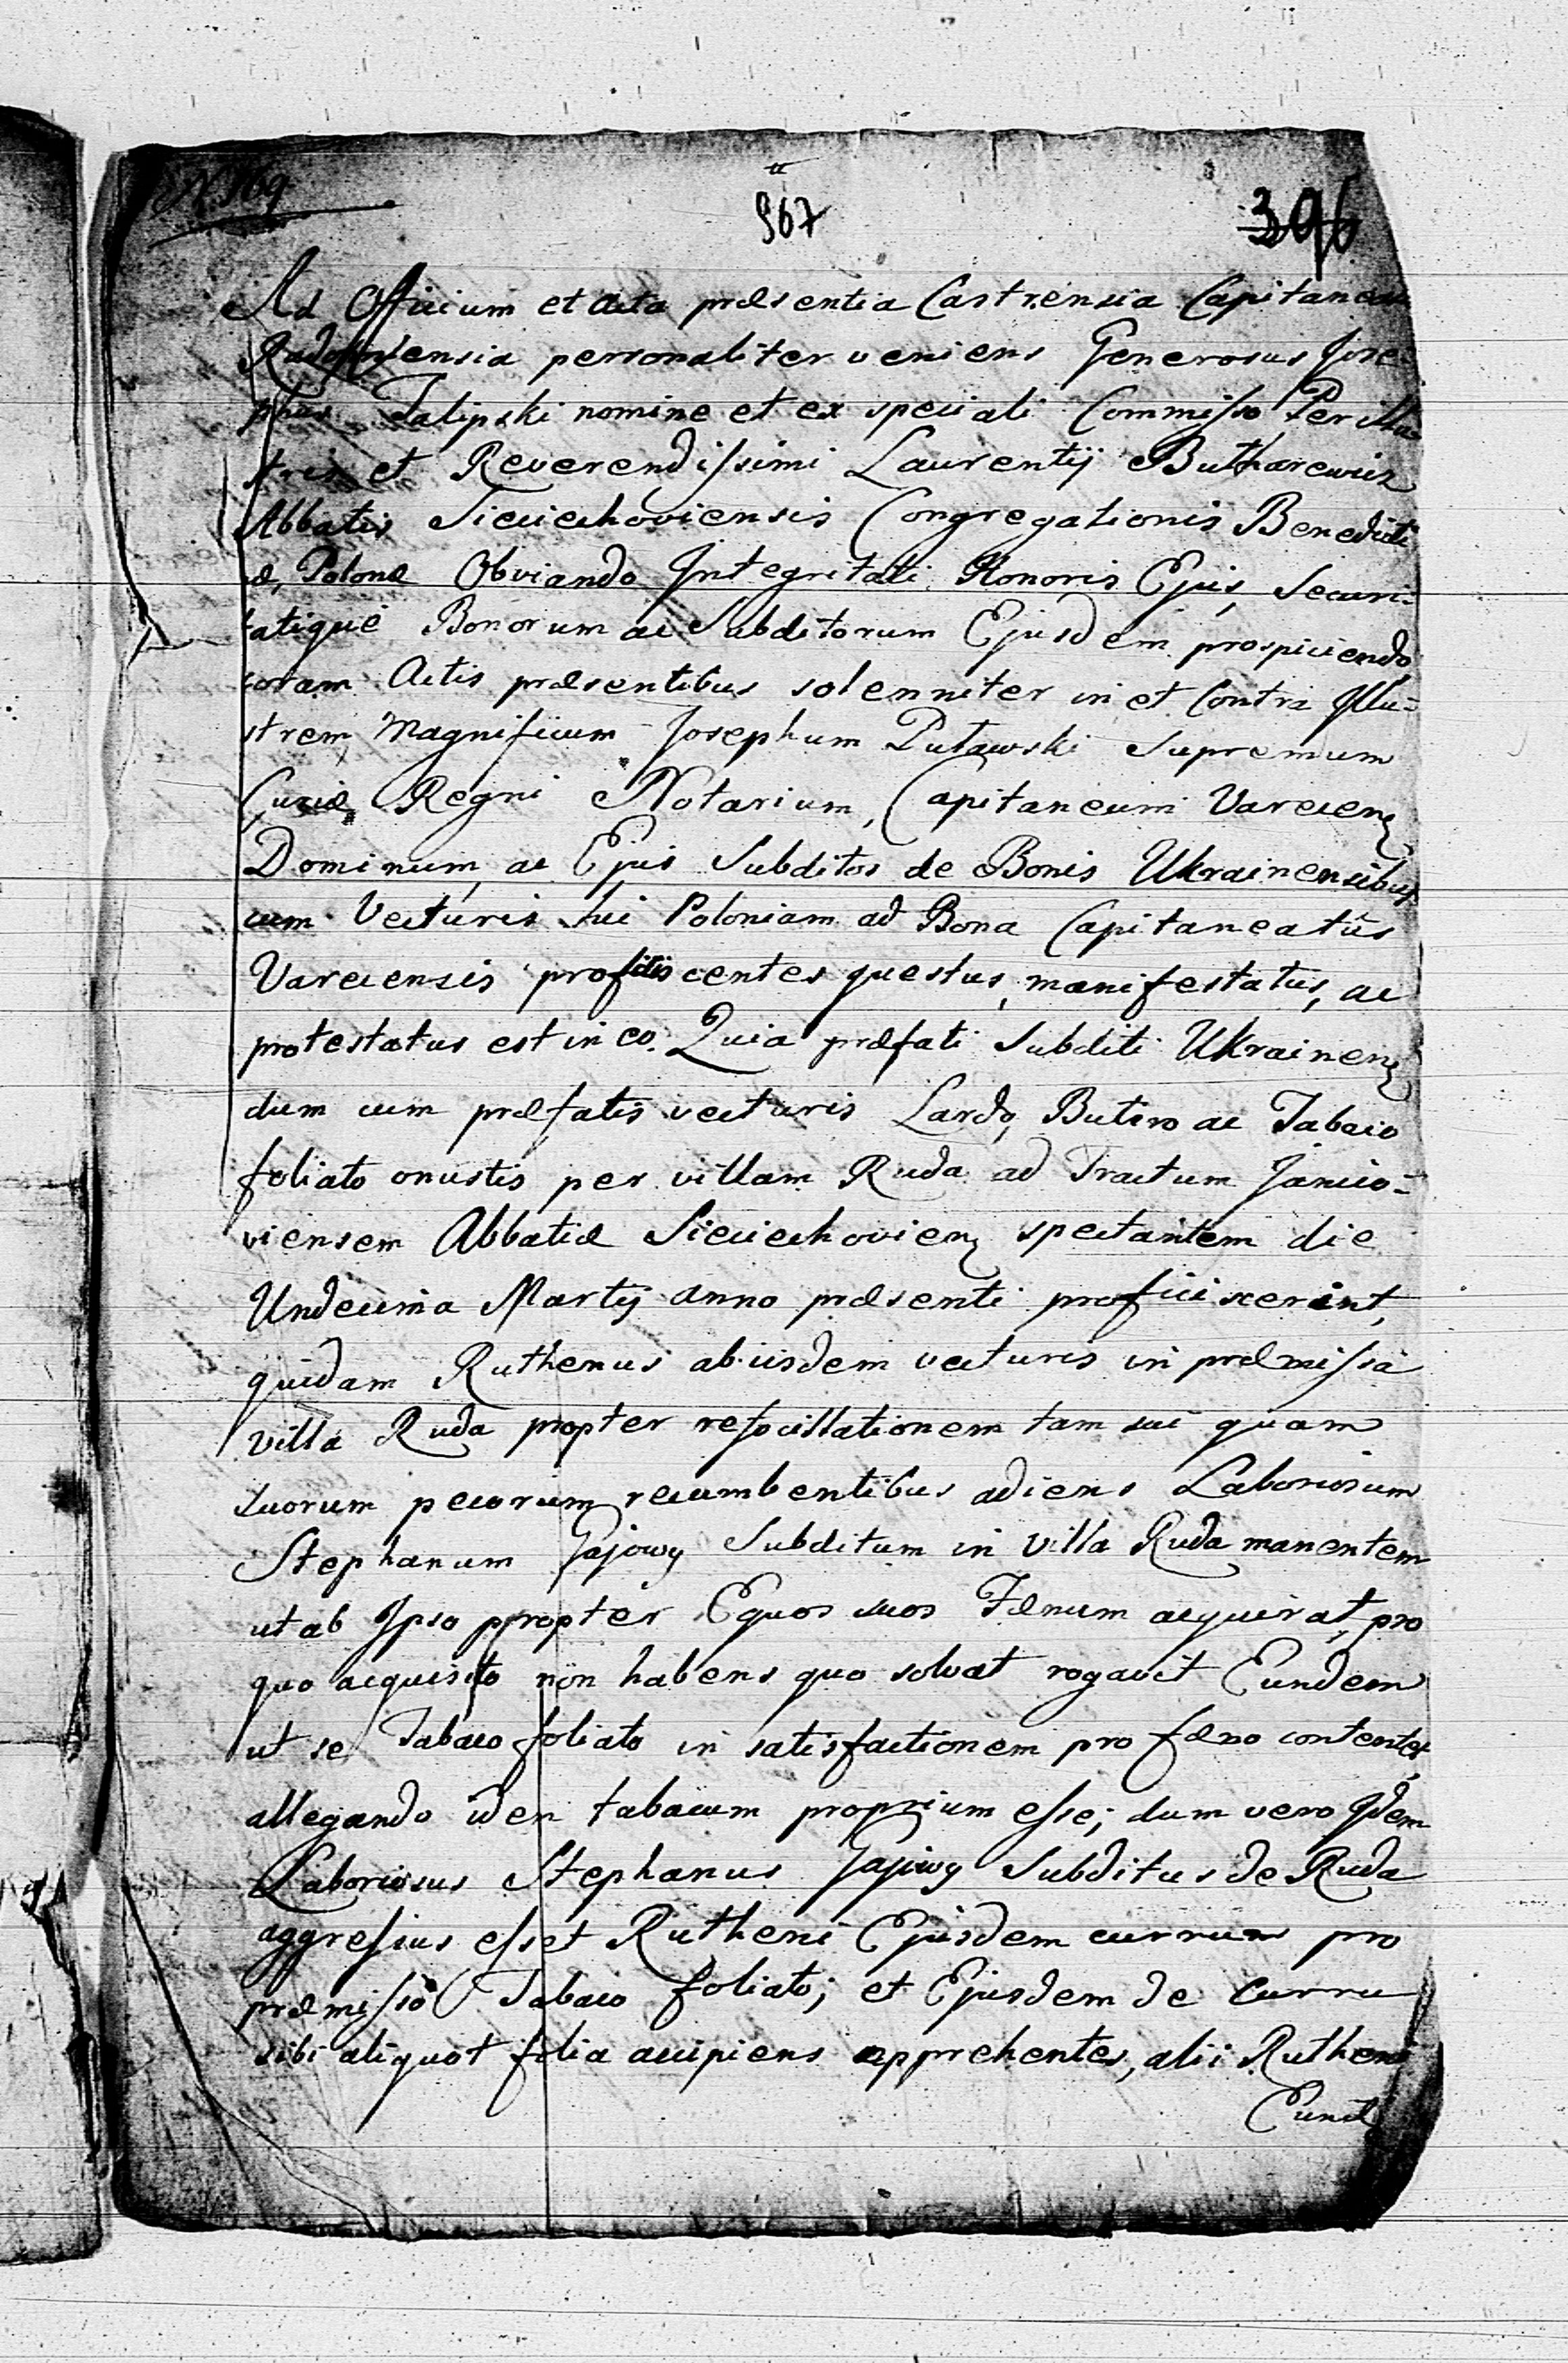 N. 169
967
396
Ad Officium et Acta præsentia Castrensia Capitanea-
Radomiensia personaliter veniens Generosus Jose-
phus Talipski nomine et ex speciali Commisso Perillu-
stris et Reverendissimi Laurentij Butharewicz
Abbatis Sieciechoviensis Congregationis Benedicti
næ, Polonæ Obviando Integritati Honoris Ejus, Securi-
tatique Bonorum ac Subditorum Ejusdem prospiciendo,
coram Actis præsentibus solenniter in et Contra Illu-
strem Magnificum Josephum Puławski Supremum
Curiæ Regni Notarium, Capitaneum Varecen
Dominum, ac Ejus Subditos de Bonis Ukrainensibus,
cum Vecturis hic Poloniam ad Bona Capitaneatûs
Varecensis proficiscentes questus, manifestatus, ac
protestatus est in eo. Quia præfati Subditi Ukrainen
dum cum præfatis vecturis Lardo, Butiro ac Tabaco
foliato onustis per villam Ruda ad Tractum Janico-
viensem Abbatiæ Sieciechovien spectantem die
Undecima Martij anno præsenti proficiscerint,
quidam Ruthenus ab iisdem vecturis in præmissa
villa Ruda propter refocillationem tam sui quam
suorum pecorum recumbentibus adiens Laboriosum
Stephanum Gajowy Subditum in Villa Ruda manentem
ut ab Ipso propter Equos suos Fænum acquirat, pro
quo acquisito non habens quo solvat rogavit Eundem
ut se Tabaco foliato in satisfactionem pro fæno contentet,
allegando idem tabacum proprium esse; dum vero Idem
Laboriosus Stephanus Gajowy Subditus de Ruda
aggressus esset Rutheni Ejusdem currum pro
præmisso Tabaco foliato; et Ejusdem de curru
sibi aliquot folia accipiens apprehentes, alii Rutheni
Eund